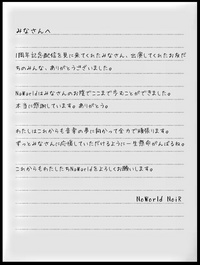 みなさんへ
1周年記念配信を見に来てくれたみなさん、出演してくれたお友だちのみんな、ありがとうございました。
NoWorldはみなさんのお陰でここまで歩むことができました。
本当に感謝しています。ありがとう。
わたしはこれからも音楽の夢に向かって全力で頑張ります。
ずっとみなさんに応援していただけるように一生懸命がんばるね。
これからもわたしたちNoWorldをよろしくお願いします。
NoWorld NoiR